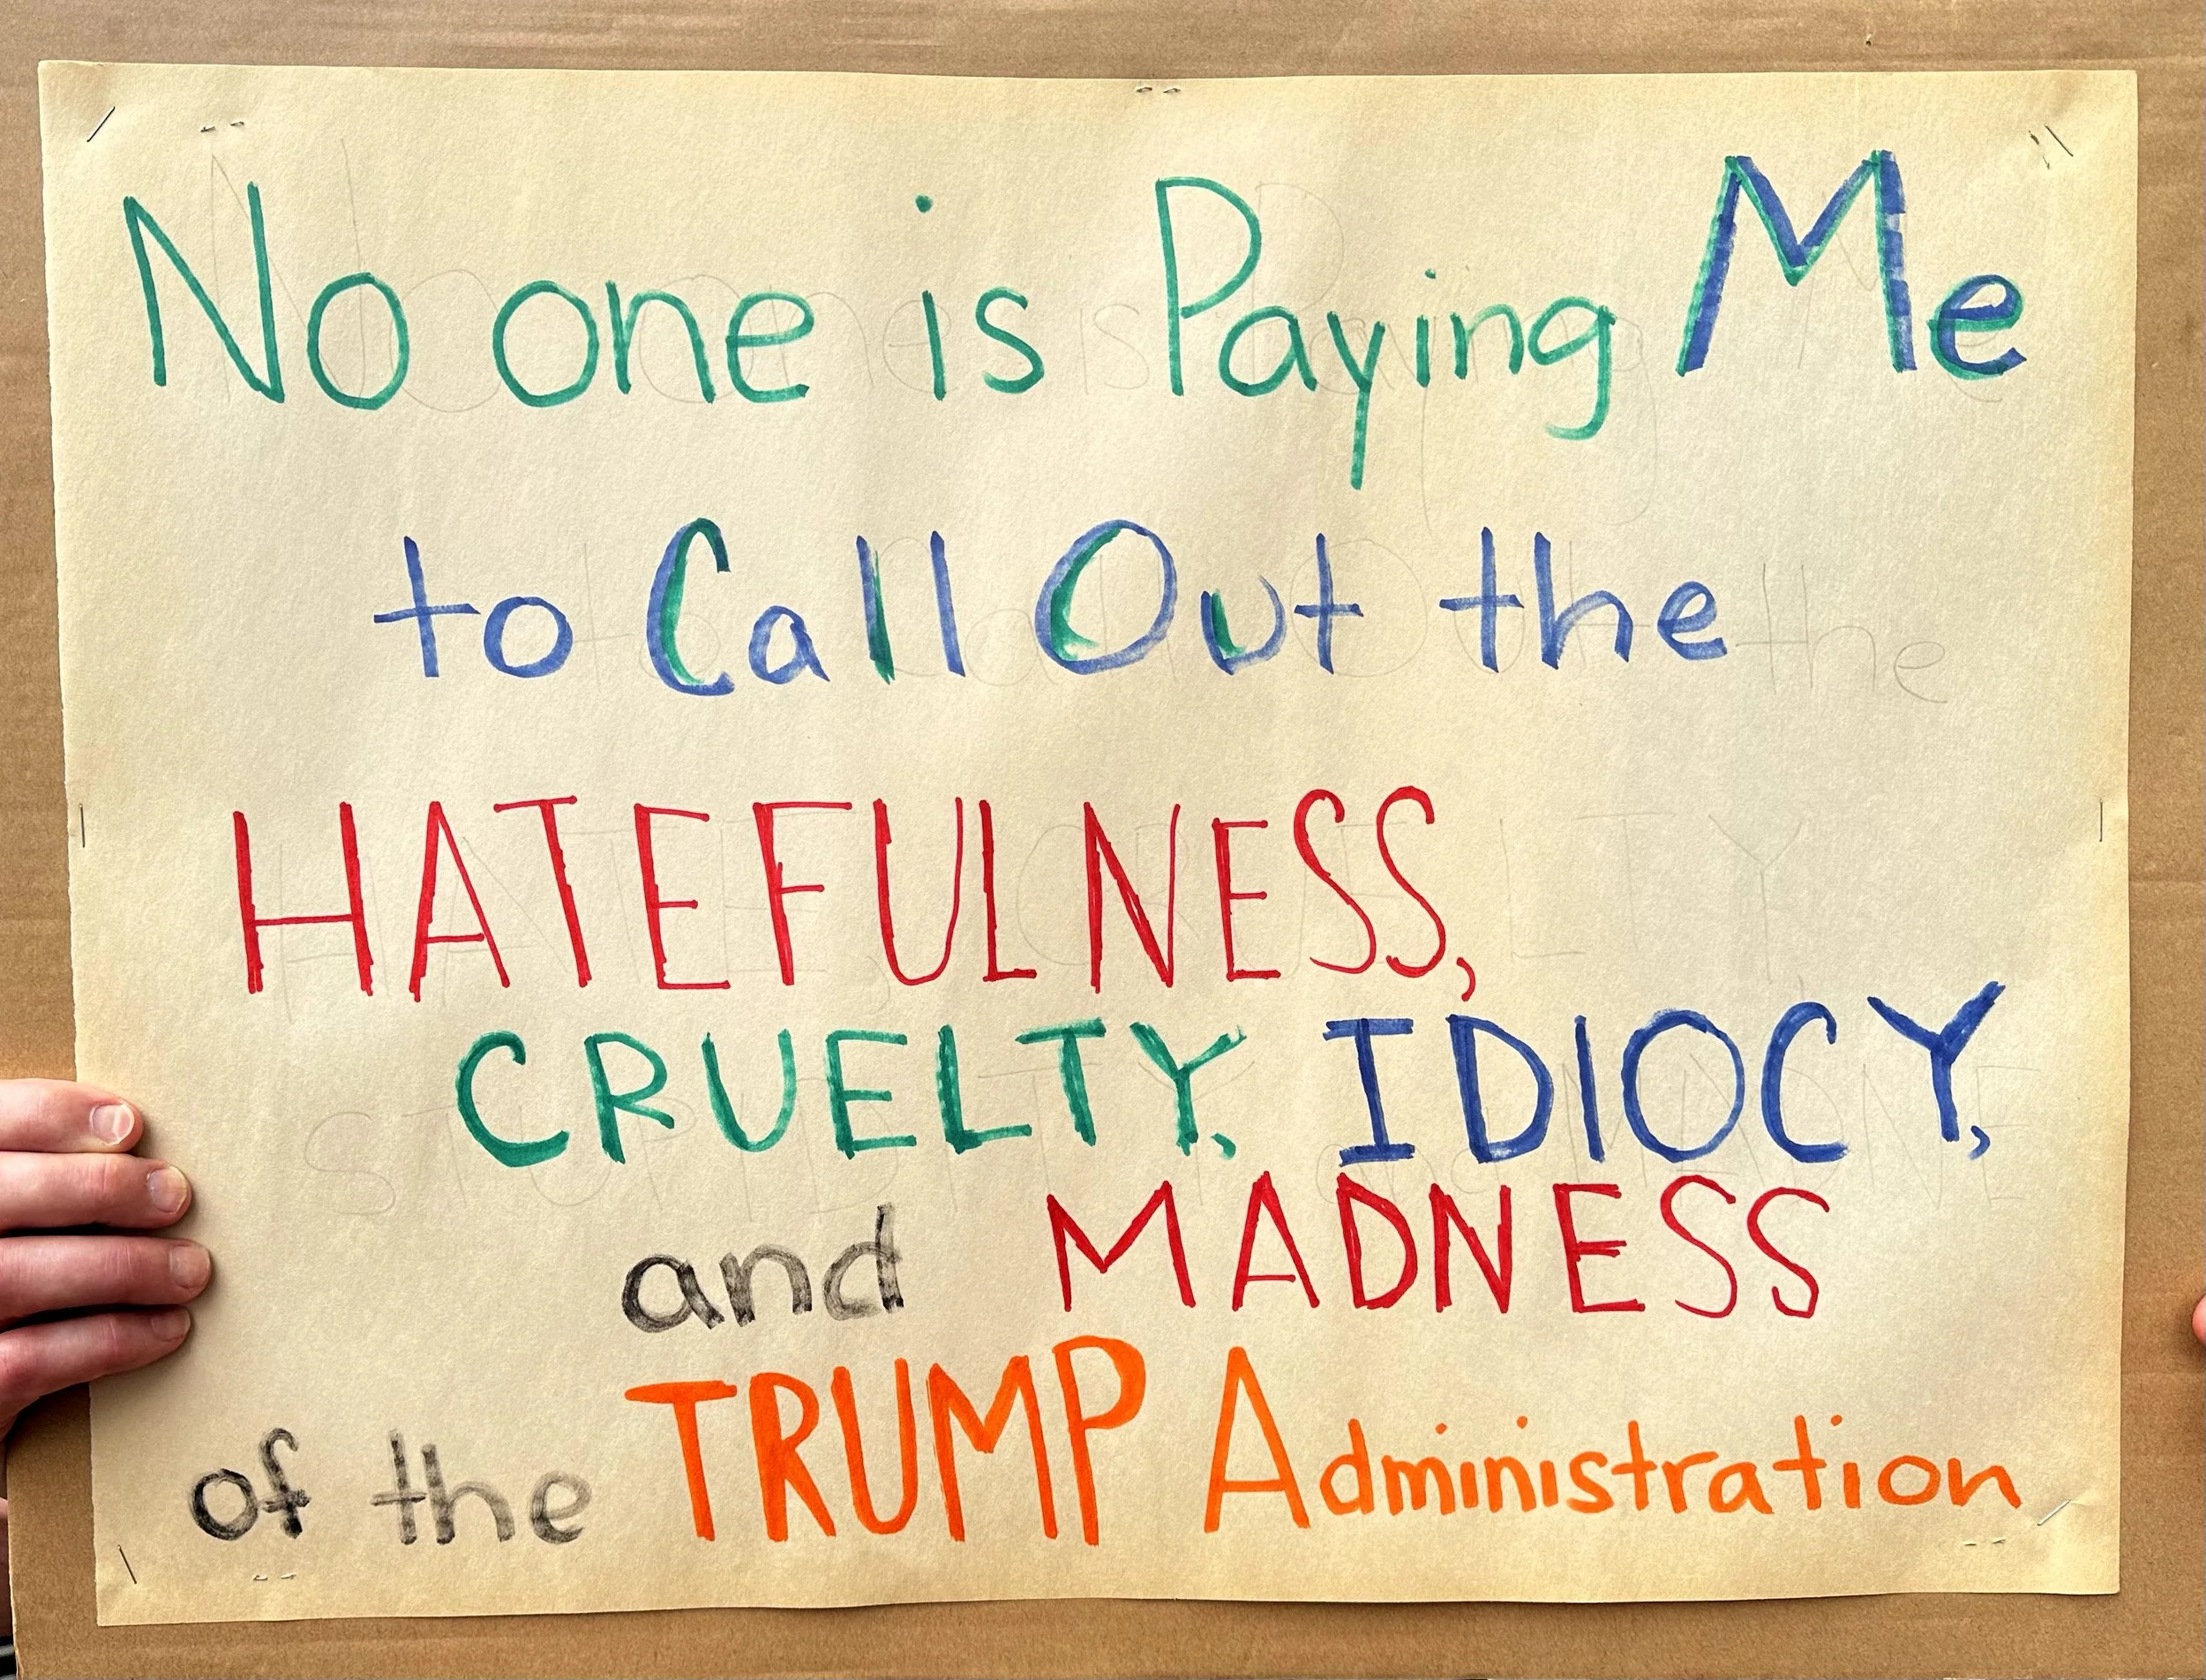 No one is Paying Me
to Call Out the
HATEFULNESS,
CRUELTY, IDIOCY,
and MADNESS
of the TRUMP Administration